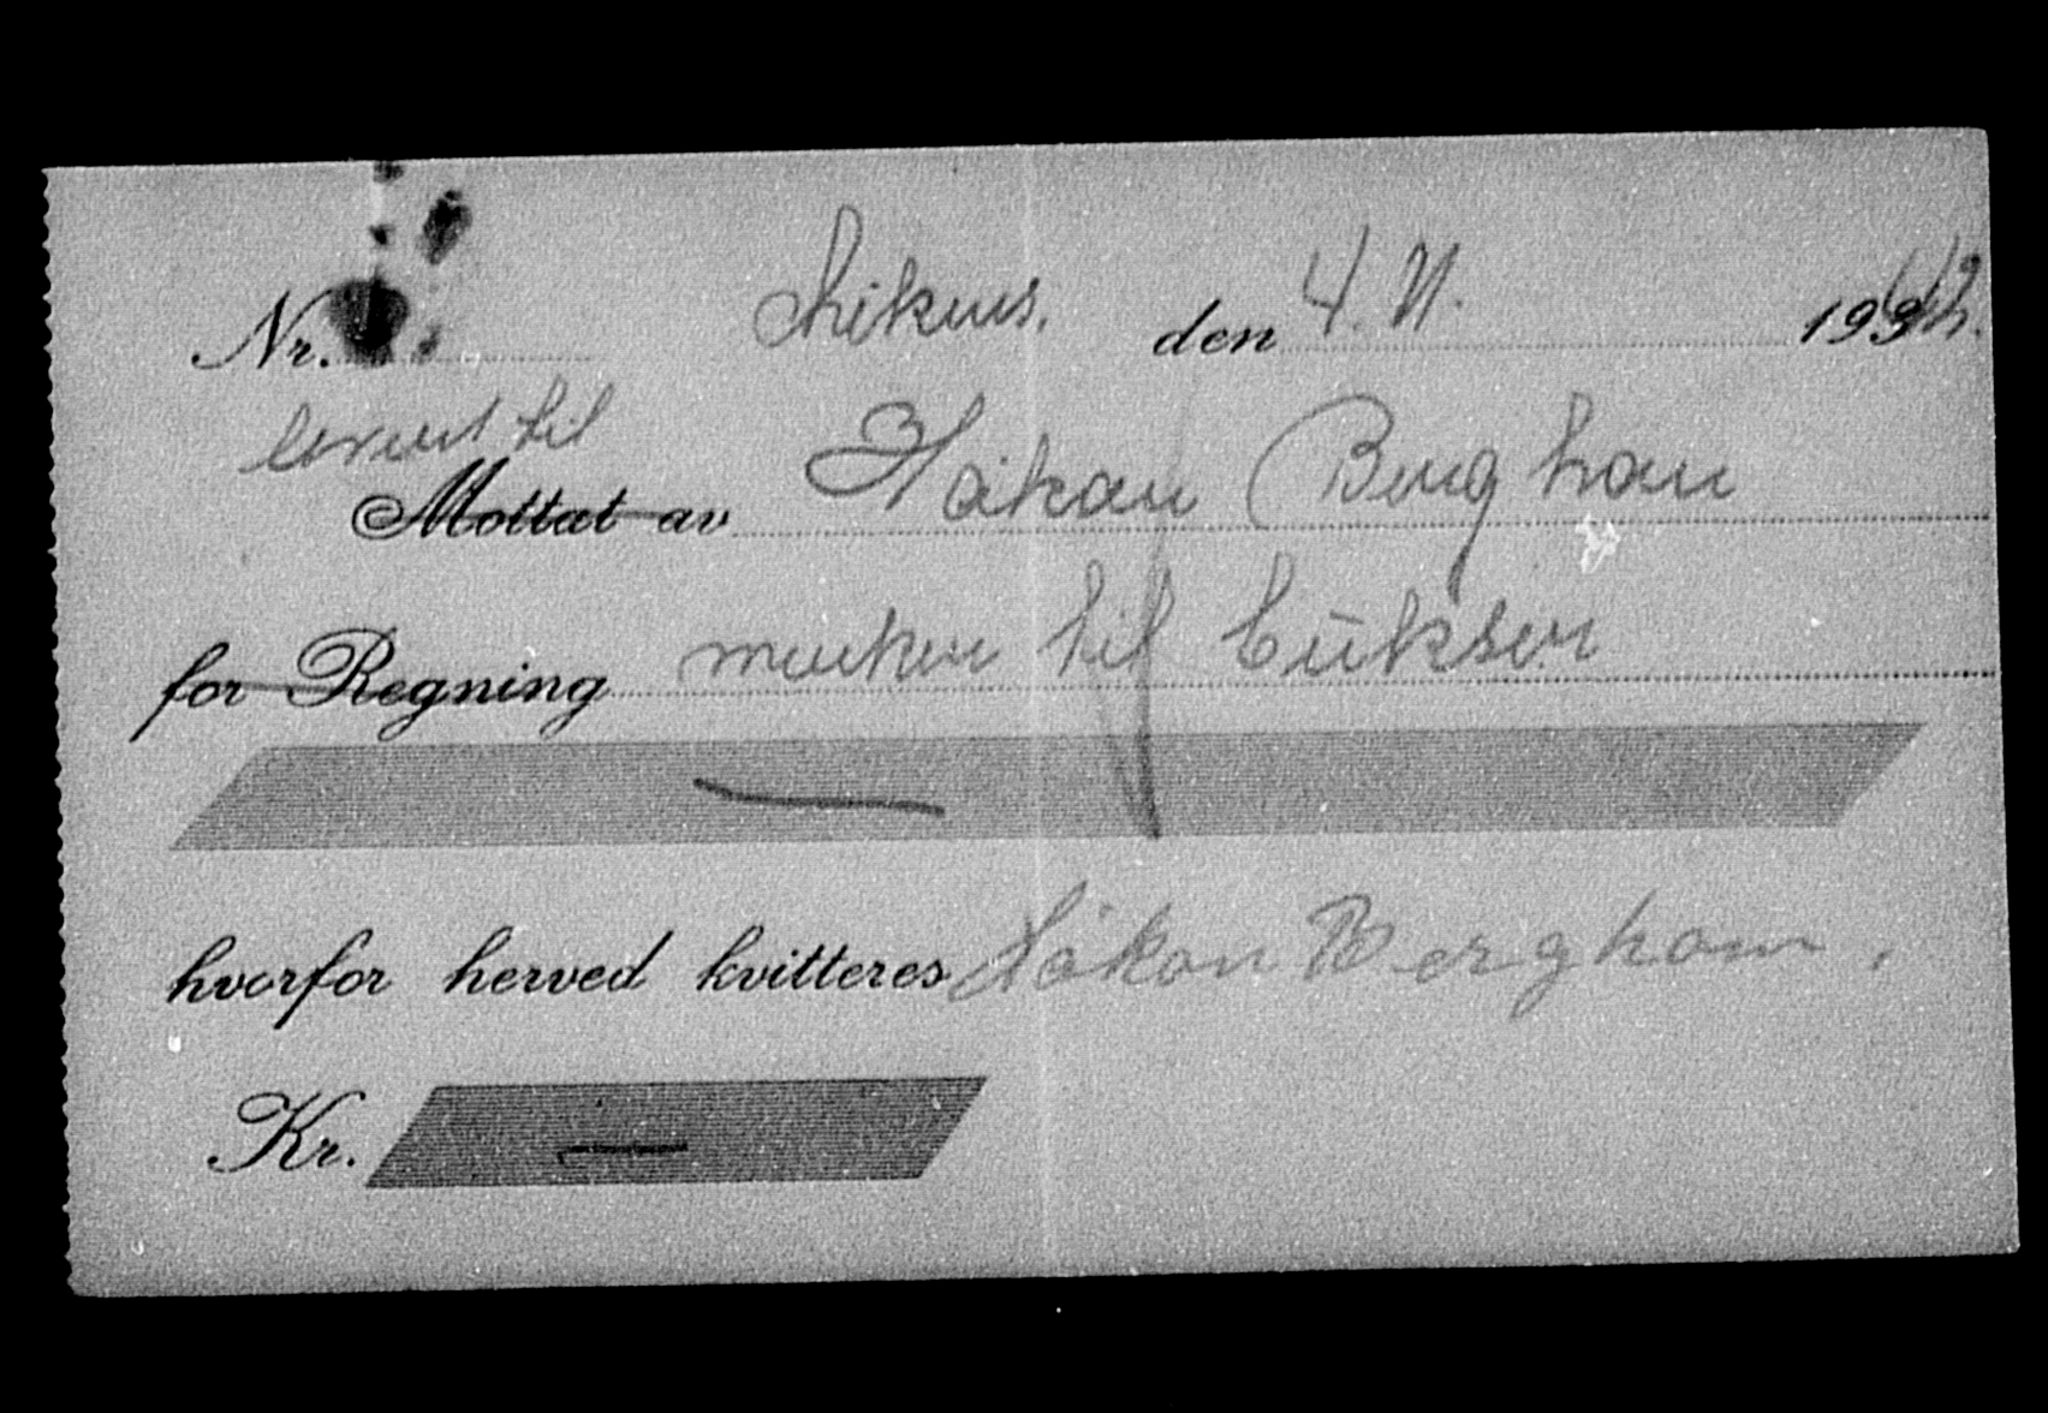 Nr. den 4. 11. 1942.
levert til
Mottat av Håkan Berghan
for Regning merker til bukser
hvorfor herved kvitteres Håkon Bergham.
Kr. —